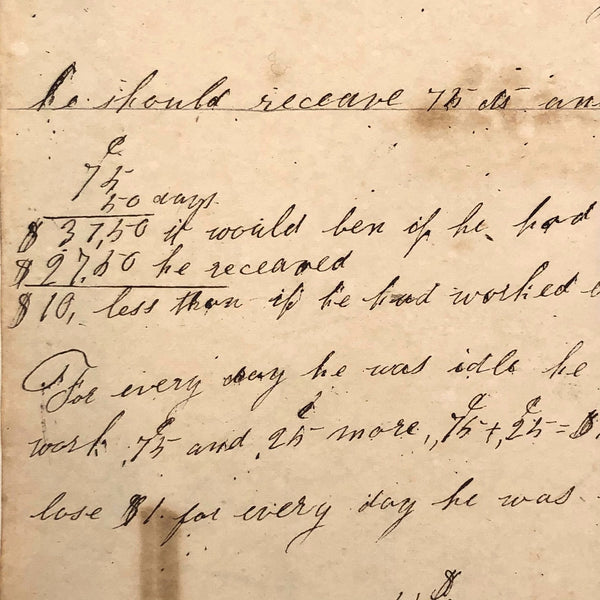 he should receave 75 cts an
c
75
50 days
$ 37,50 it would ben if he had
$ 27,50 he receaved
$ 10, less than if he had worked
For every day he was idle he
work ,75 and ,25 more, ,75 + ,25 = $
lose $1 for every day he was
$